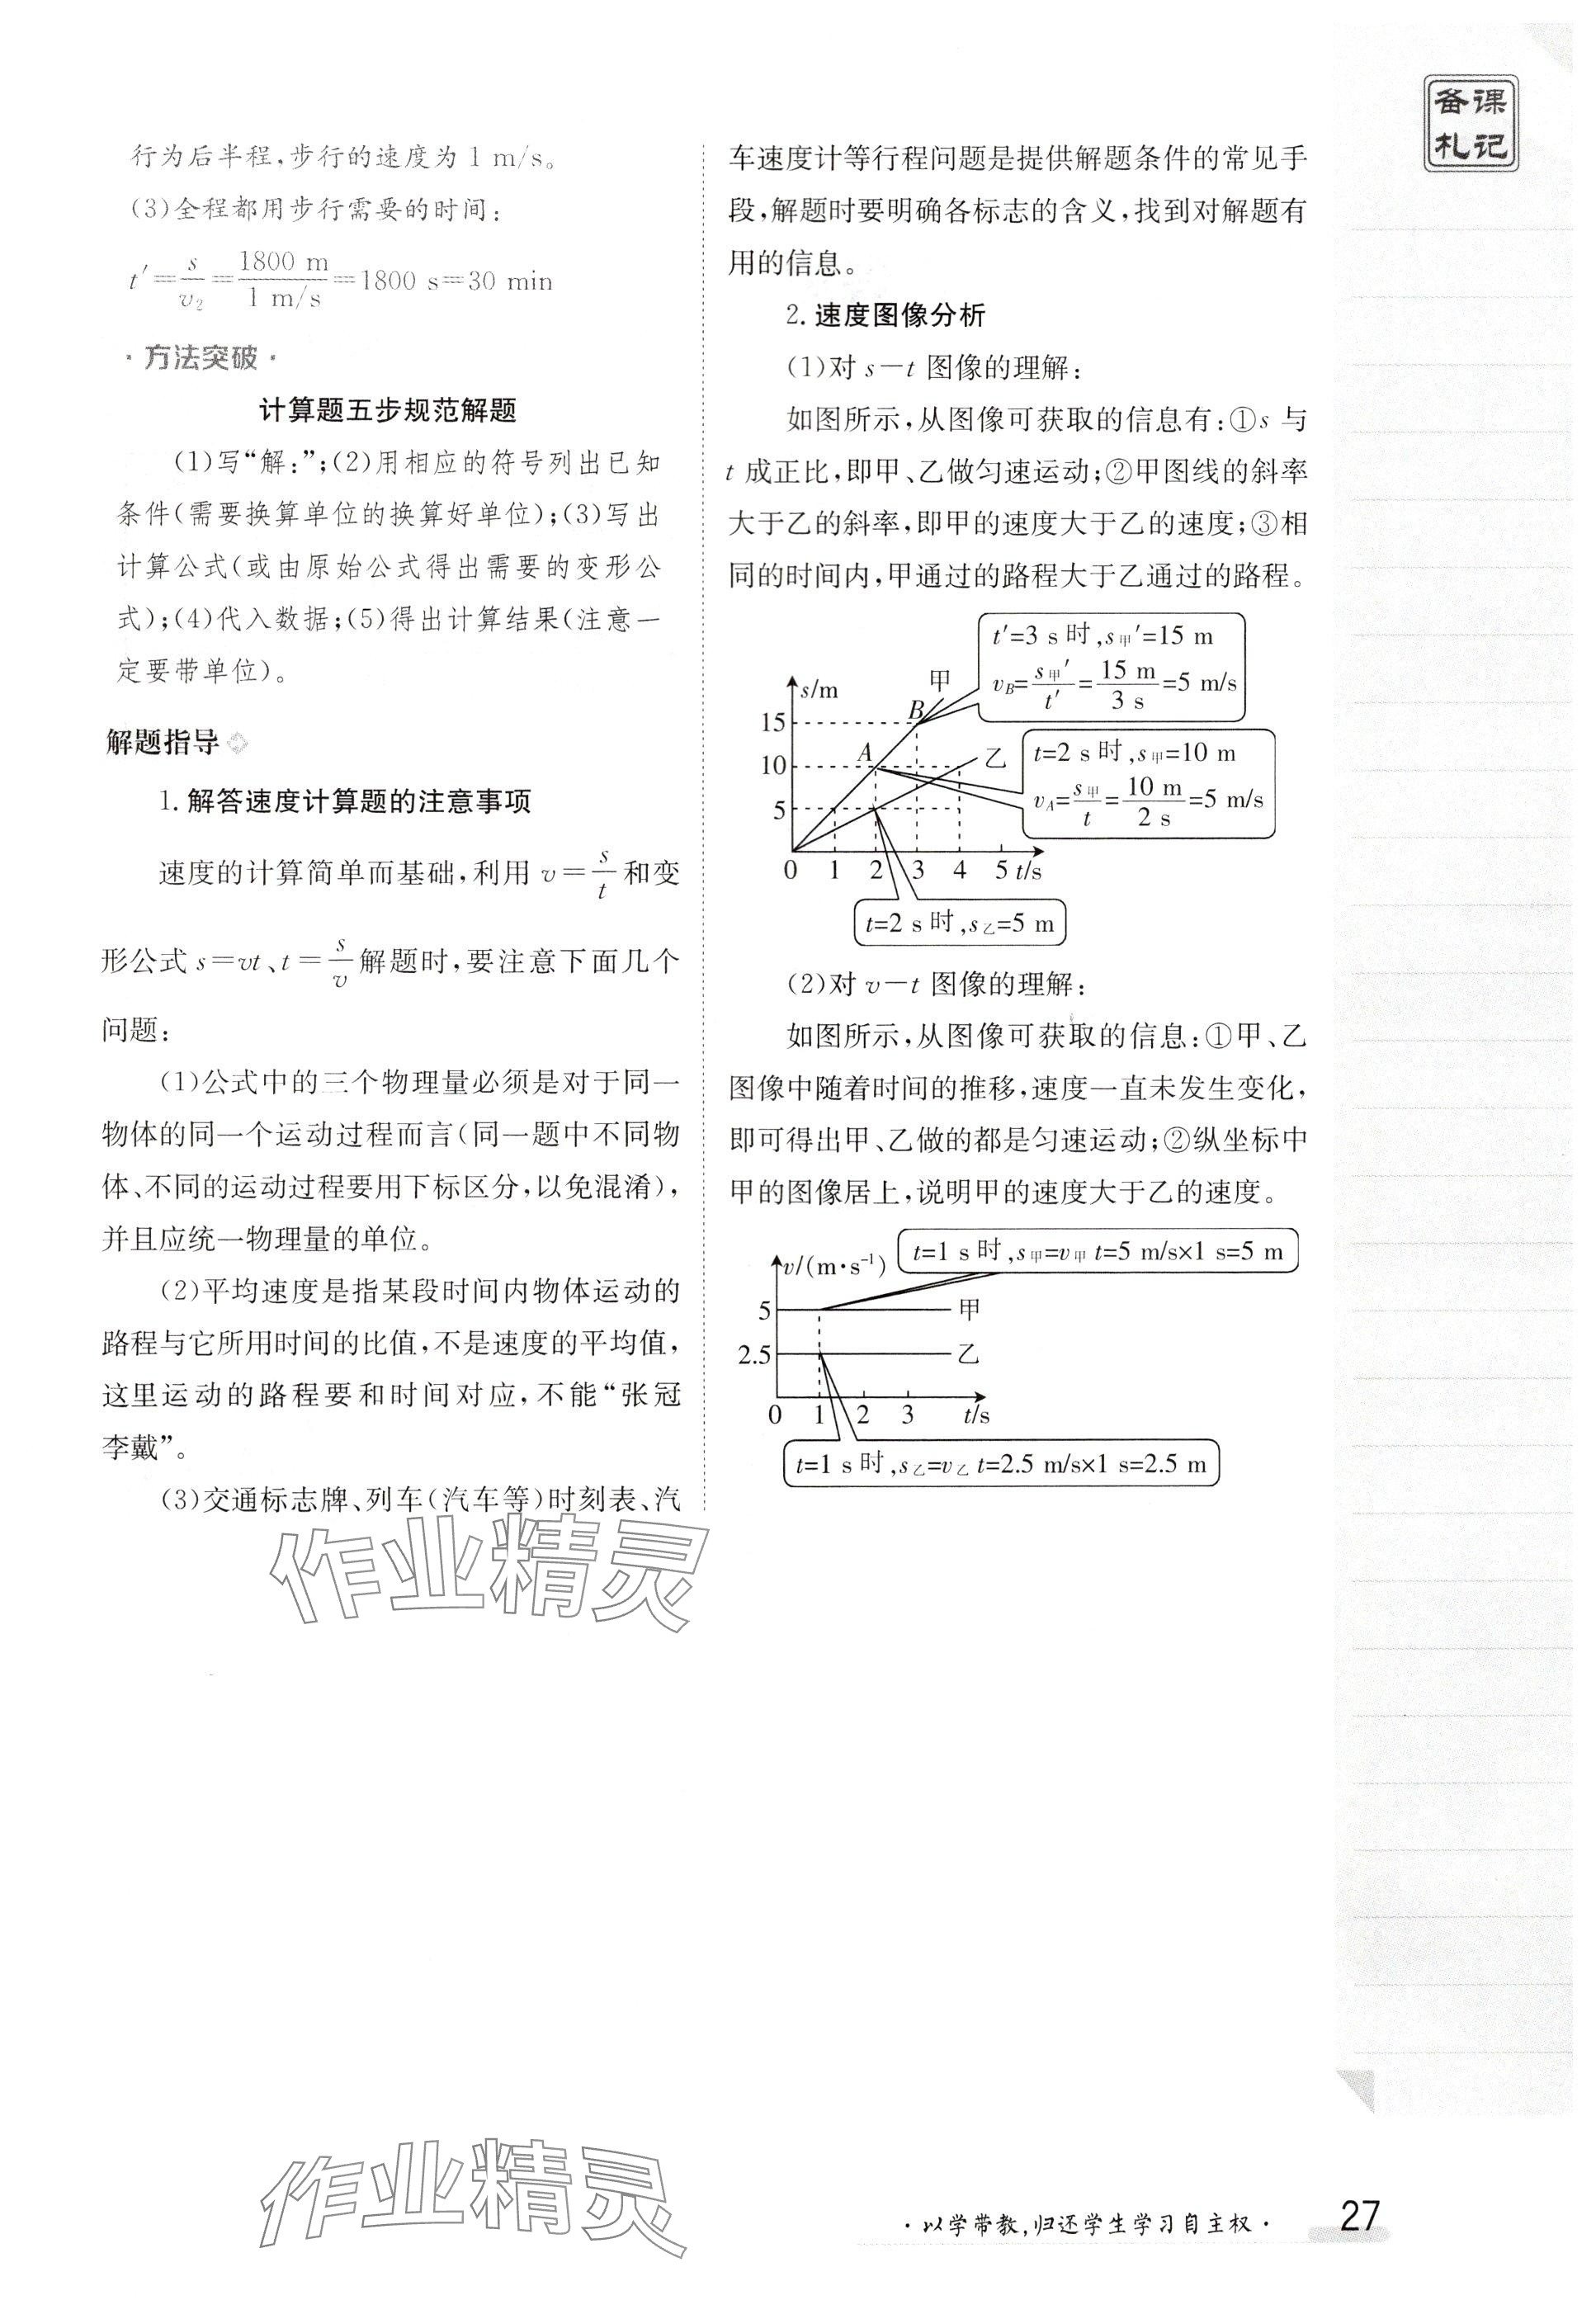 备课
札记
行为后半程,步行的速度为 1 m/s。
(3)全程都用步行需要的时间:
t′=s/v₂=1800 m/1 m/s=1800 s=30 min
·方法突破·
计算题五步规范解题
(1)写“解:”;(2)用相应的符号列出已知
条件(需要换算单位的换算好单位);(3)写出
计算公式(或由原始公式得出需要的变形公
式);(4)代入数据;(5)得出计算结果(注意一
定要带单位)。
解题指导
1. 解答速度计算题的注意事项
速度的计算简单而基础,利用 v=s/t 和变
形公式 s=vt、t=s/v 解题时,要注意下面几个
问题:
(1)公式中的三个物理量必须是对于同一
物体的同一个运动过程而言(同一题中不同物
体、不同的运动过程要用下标区分,以免混淆),
并且应统一物理量的单位。
(2)平均速度是指某段时间内物体运动的
路程与它所用时间的比值,不是速度的平均值,
这里运动的路程要和时间对应,不能“张冠
李戴”。
(3)交通标志牌、列车(汽车等)时刻表、汽
车速度计等行程问题是提供解题条件的常见手
段,解题时要明确各标志的含义,找到对解题有
用的信息。
2. 速度图像分析
(1)对 s—t 图像的理解:
如图所示,从图像可获取的信息有:①s 与
t 成正比,即甲、乙做匀速运动;②甲图线的斜率
大于乙的斜率,即甲的速度大于乙的速度;③相
同的时间内,甲通过的路程大于乙通过的路程。
t′=3 s 时,s甲′=15 m
vB=s甲′/t′=15 m/3 s=5 m/s
s/m
甲
15
B
10
A
乙
5
t=2 s 时,s甲=10 m
vA=s甲/t=10 m/2 s=5 m/s
0 1 2 3 4 5 t/s
t=2 s 时,s乙=5 m
(2)对 v—t 图像的理解:
如图所示,从图像可获取的信息:①甲、乙
图像中随着时间的推移,速度一直未发生变化,
即可得出甲、乙做的都是匀速运动;②纵坐标中
甲的图像居上,说明甲的速度大于乙的速度。
t=1 s 时,s甲=v甲 t=5 m/s×1 s=5 m
v/(m·s⁻¹)
5
甲
2.5
乙
0 1 2 3 t/s
t=1 s 时,s乙=v乙 t=2.5 m/s×1 s=2.5 m
作业精灵
作业精灵
·以学带教,归还学生学习自主权·
27